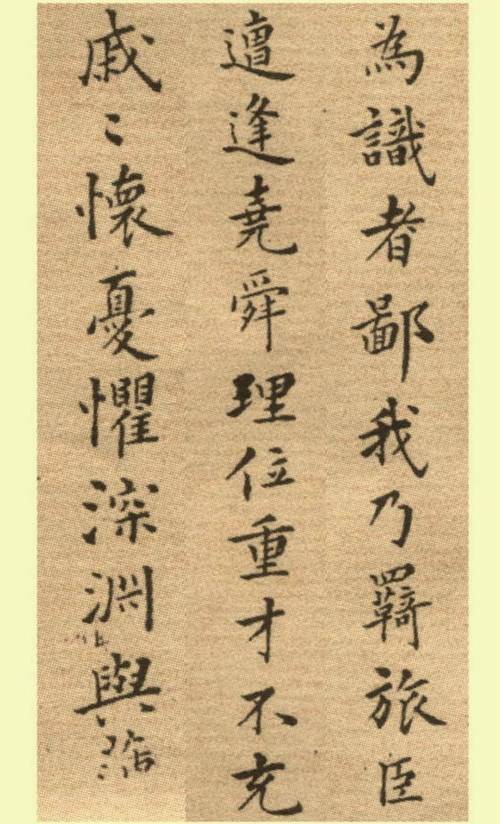 為識者鄙我乃羇旅臣
邅逢堯舜理位重才不充
戚〻懷憂懼深淵與